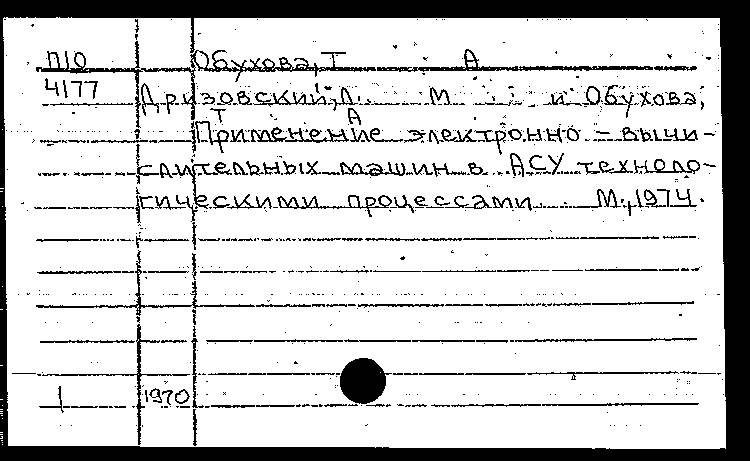 П10 Обухова, Т А
4177 Дризовский, Л. М и Обухова,
Т А
Применение электронно-вычи-
слительных машин в АСУ техноло-
гическими процессами. М., 1974.
1 1970